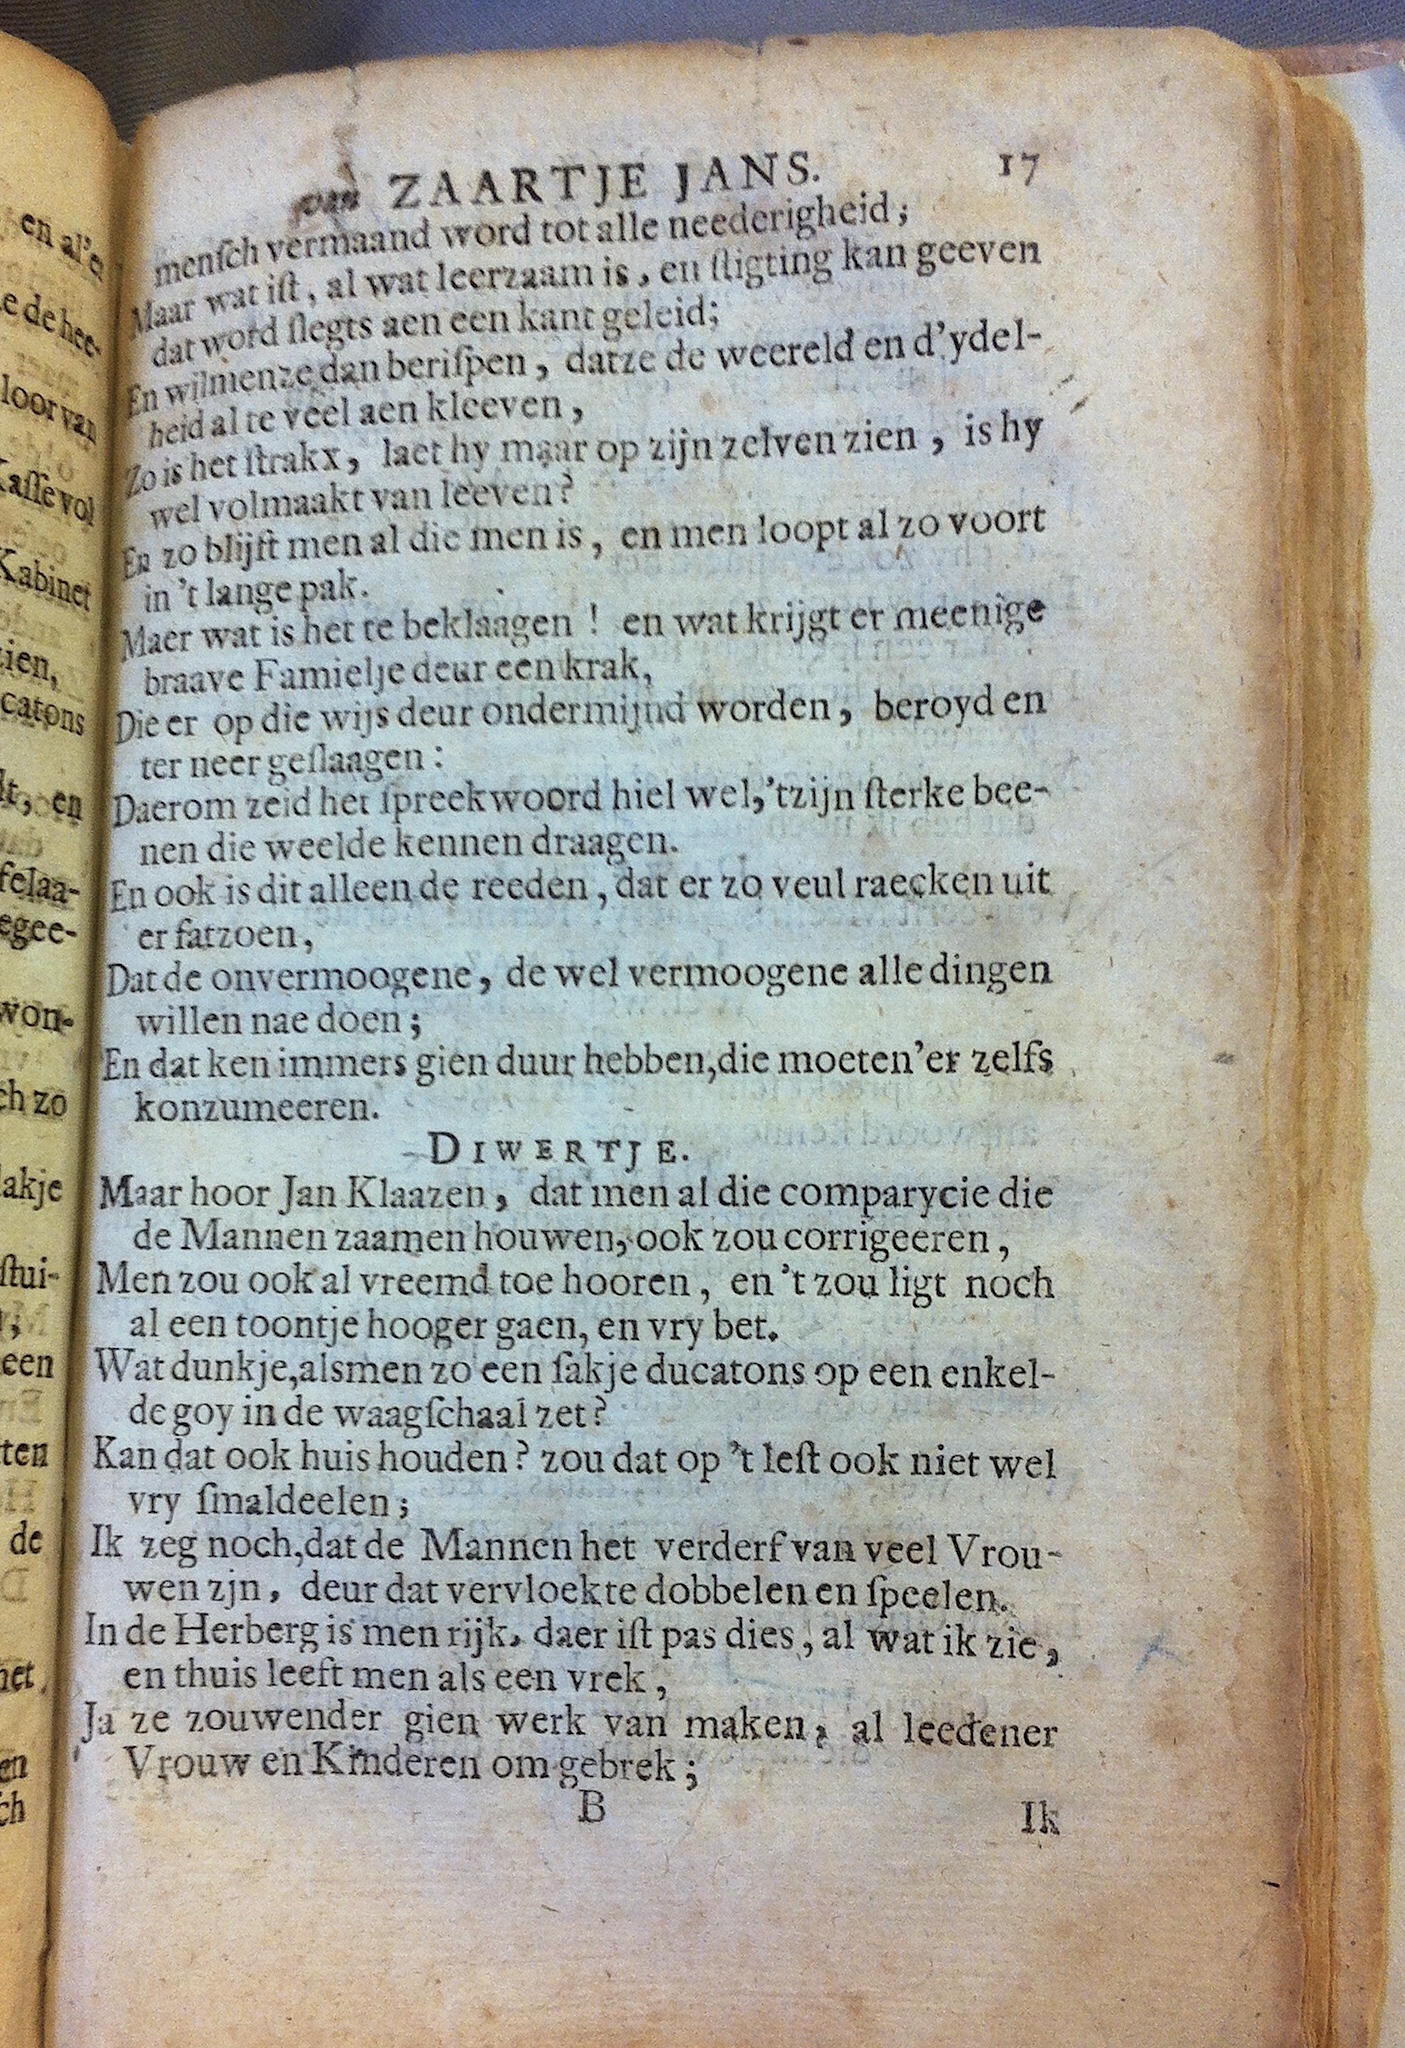 van ZAARTJE JANS. 17
menſch vermaand word tot alle neederigheid;
Maar wat iſt, al wat leerzaam is, en ſtigting kan geeven
dat word ſlegts aen een kant geleid;
En wilmenze dan beriſpen, datze de weereld en d'ydel-
heid al te veel aen kleeven,
Zo is het ſtrakx, laet hy maar op zijn zelven zien, is hy
wel volmaakt van leeven?
En zo blijft men al die men is, en men loopt al zo voort
in 't lange pak.
Maer wat is het te beklaagen! en wat krijgt er meenige
braave Famielje deur een krak,
Die er op die wijs deur ondermijnd worden, beroyd en
ter neer geſlaagen:
Daerom zeid het ſpreekwoord hiel wel, 'tzijn ſterke bee-
nen die weelde kennen draagen.
En ook is dit alleen de reeden, dat er zo veul raecken uit
er fatzoen,
Dat de onvermoogene, de wel vermoogene alle dingen
willen nae doen;
En dat ken immers gien duur hebben, die moeten'er zelfs
konzumeeren.
DIWERTJE.
Maar hoor Jan Klaazen, dat men al die comparycie die
de Mannen zaamen houwen, ook zou corrigeeren,
Men zou ook al vreemd toe hooren, en 't zou ligt noch
al een toontje hooger gaen, en vry bet.
Wat dunkje, alsmen zo een ſakje ducatons op een enkel-
de goy in de waagſchaal zet?
Kan dat ook huis houden? zou dat op 't leſt ook niet wel
vry ſmaldeelen;
Ik zeg noch, dat de Mannen het verderf van veel Vrou-
wen zjn, deur dat vervloekte dobbelen en ſpeelen.
In de Herberg is men rijk, daer iſt pas dies, al wat ik zie,
en thuis leeft men als een vrek,
Ja ze zouwender gien werk van maken, al leedener
Vrouw en Kinderen om gebrek;
B Ik
en al'er
de hee-
loor van
Kaſſe vol
Kabinet
tien,
catons
en
felaa-
egee-
won-
ch zo
akje
ſtui-
een
ten
de
het
en
ch